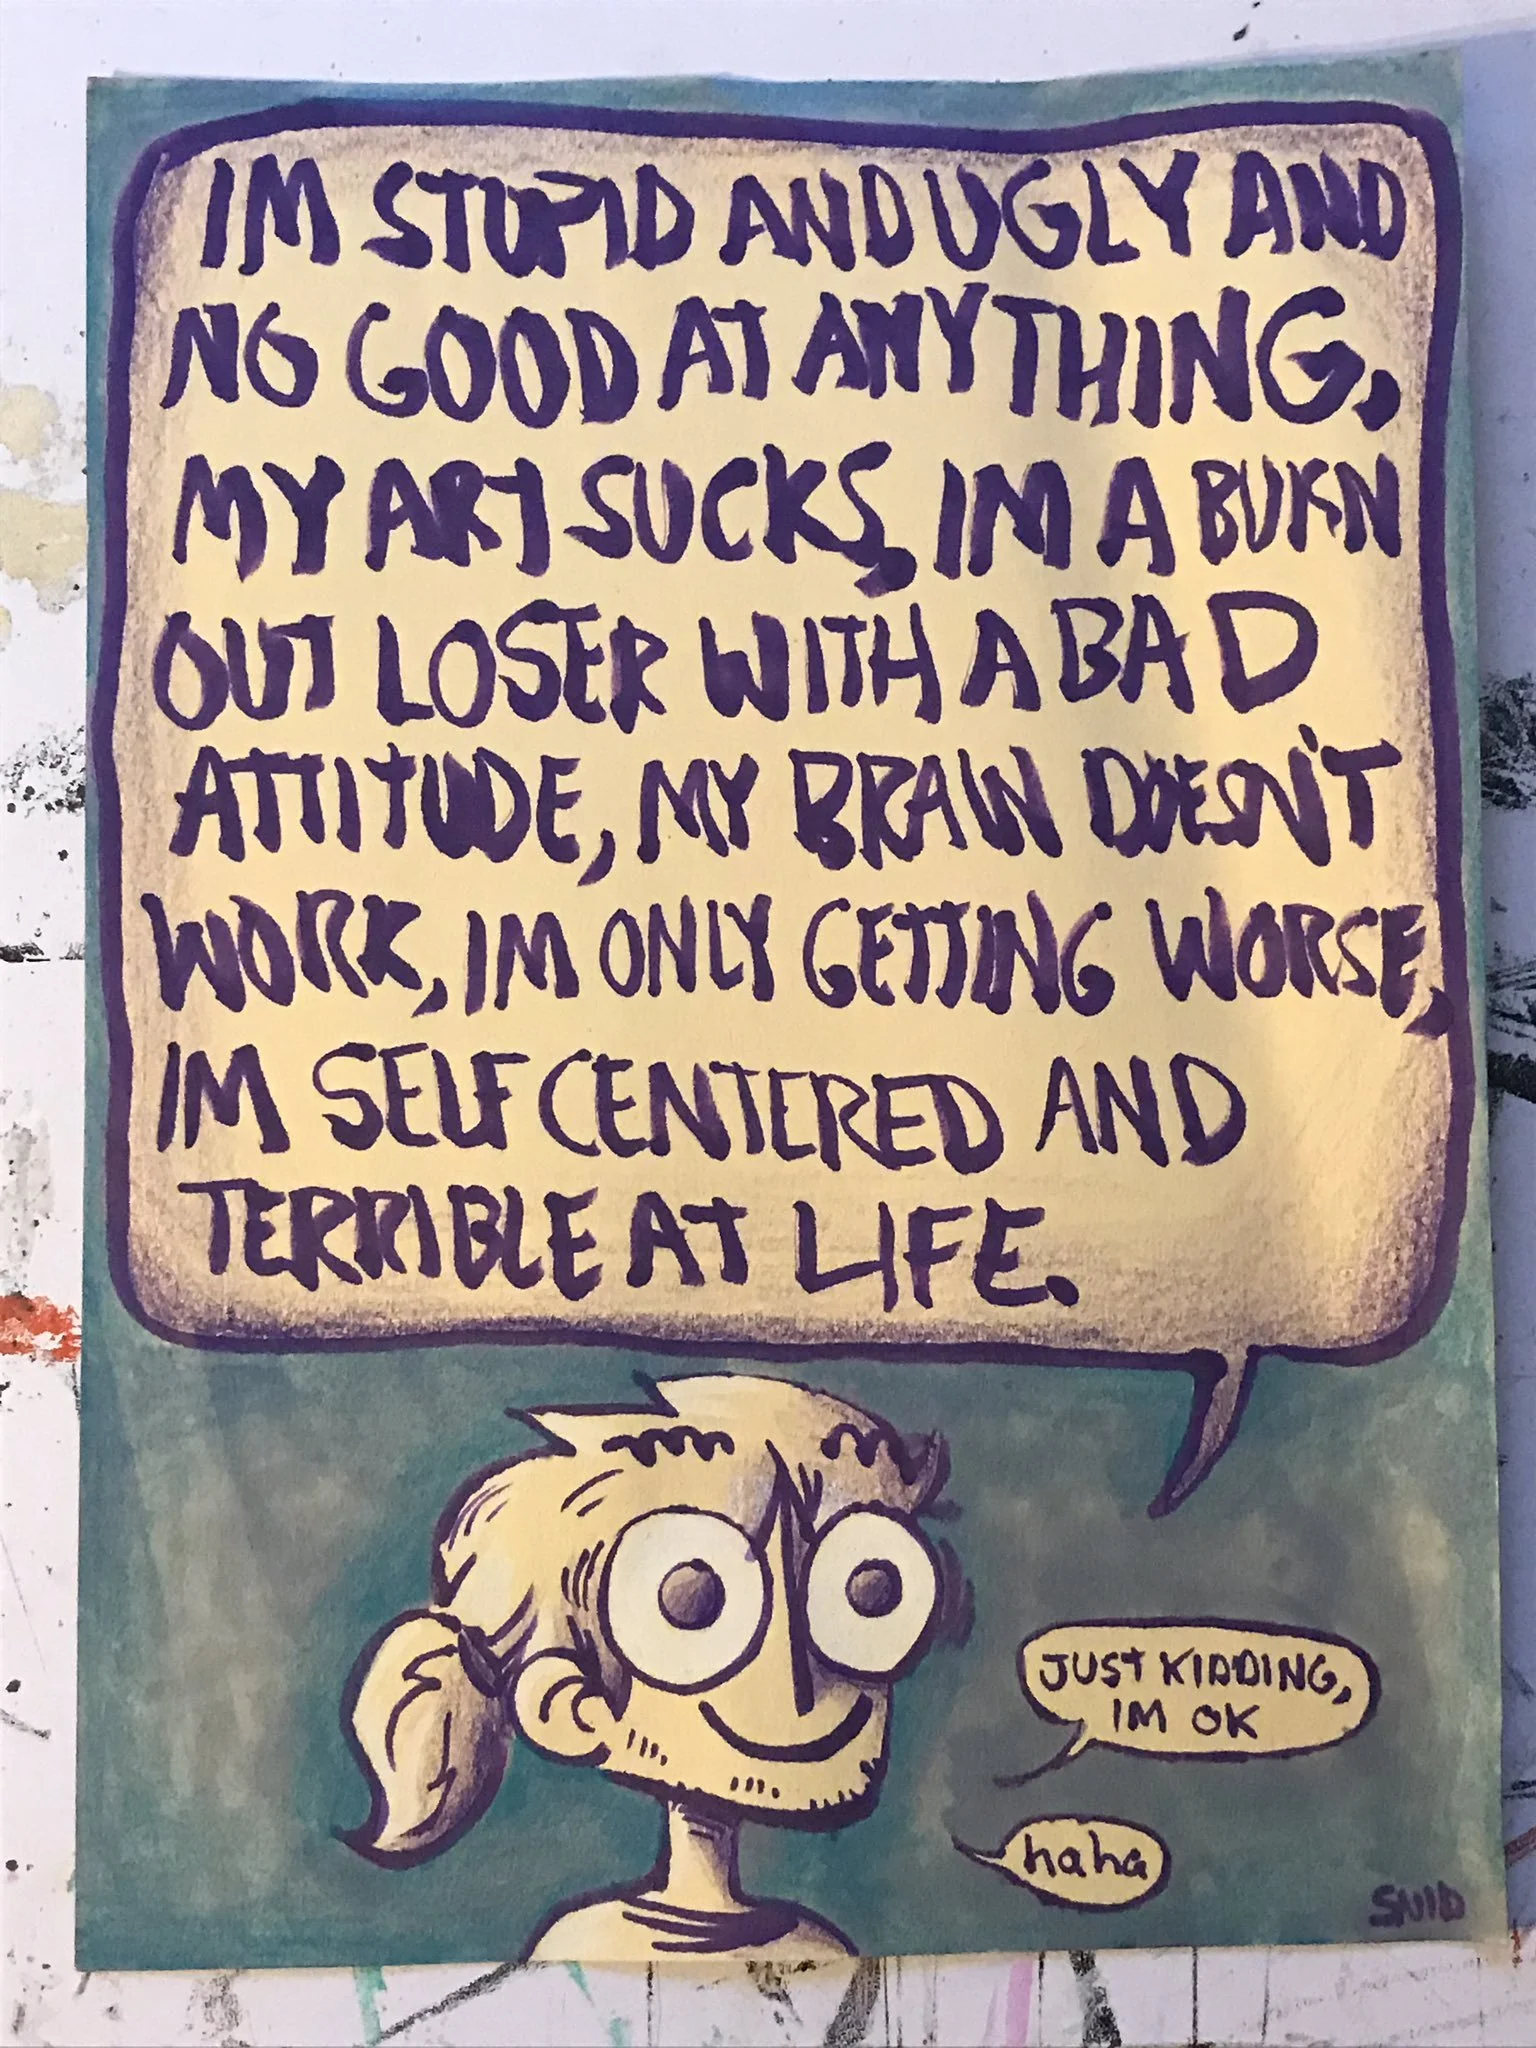 IM STUPID AND UGLY AND
NO GOOD AT ANYTHING,
MY ART SUCKS, IM A BURN
OUT LOSER WITH A BAD
ATTITUDE, MY BRAIN DOESN'T
WORK, IM ONLY GETTING WORSE,
IM SELF CENTERED AND
TERRIBLE AT LIFE.
JUST KIDDING,
IM OK
haha